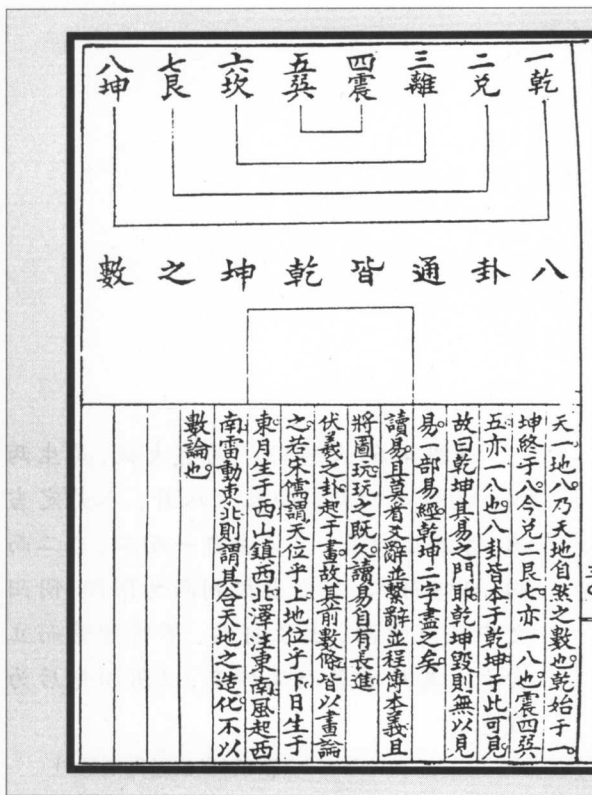 一乾
二兌
三離
四震
五巽
六坎
七艮
八坤
八卦通皆乾坤之數
天一地八乃天地自然之數也乾始于一
坤終于八今兌二艮七亦一八也震四巽
五亦一八也八卦皆本于乾坤于此可見
故曰乾坤其易之門耶乾坤毀則無以見
易一部易經乾坤二字盡之矣
讀易且莫看爻辭並繫辭並程傳本義且
將圖玩玩之既久讀易自有長進
伏羲之卦起于畫故其前數條皆以畫論
之若宋儒謂天位乎上地位乎下日生于
東月生于西山鎮西北澤注東南風起西
南雷動東北則謂其合天地之造化不以
數論也